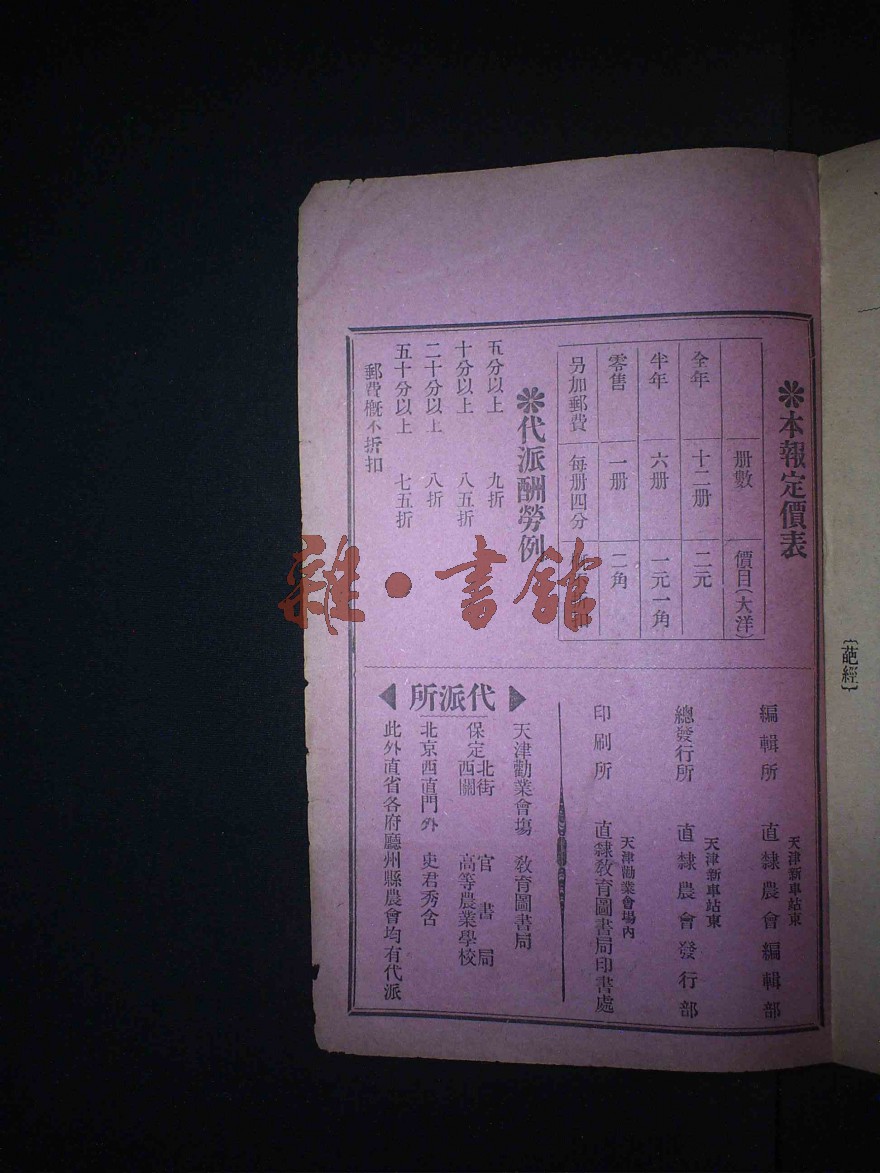 ❋本報定價表
册數 價目(大洋)
全年 十二册 二元
半年 六册 一元一角
零售 一册 二角
另加郵費 每册四分
❋代派酬勞例
五分以上 九折
十分以上 八五折
二十分以上 八折
五十分以上 七五折
郵費概不折扣
編輯所 天津新車站東 直隸農會編輯部
總發行所 天津新車站東 直隸農會發行部
印刷所 天津勸業會場內 直隸教育圖書局印書處
代派所
天津勸業會塲 教育圖書局
保定北街 官書局
西關 高等農業學校
北京西直門外 吏君秀舍
此外直省各府廳州縣農會均有代派
〔葩經〕
雜·書館